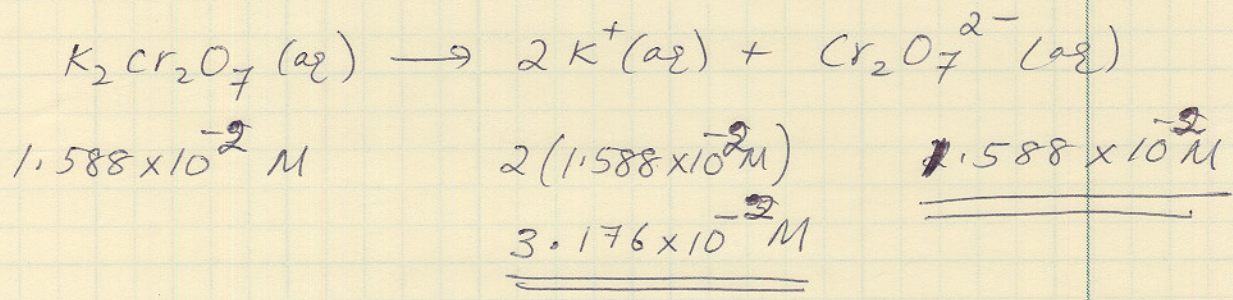 K₂Cr₂O₇ (aq) → 2 K⁺(aq) + Cr₂O₇²⁻ (aq)
1.588 x 10⁻² M 2(1.588 x 10⁻² M) 1.588 x 10⁻² M
3.176 x 10⁻² M